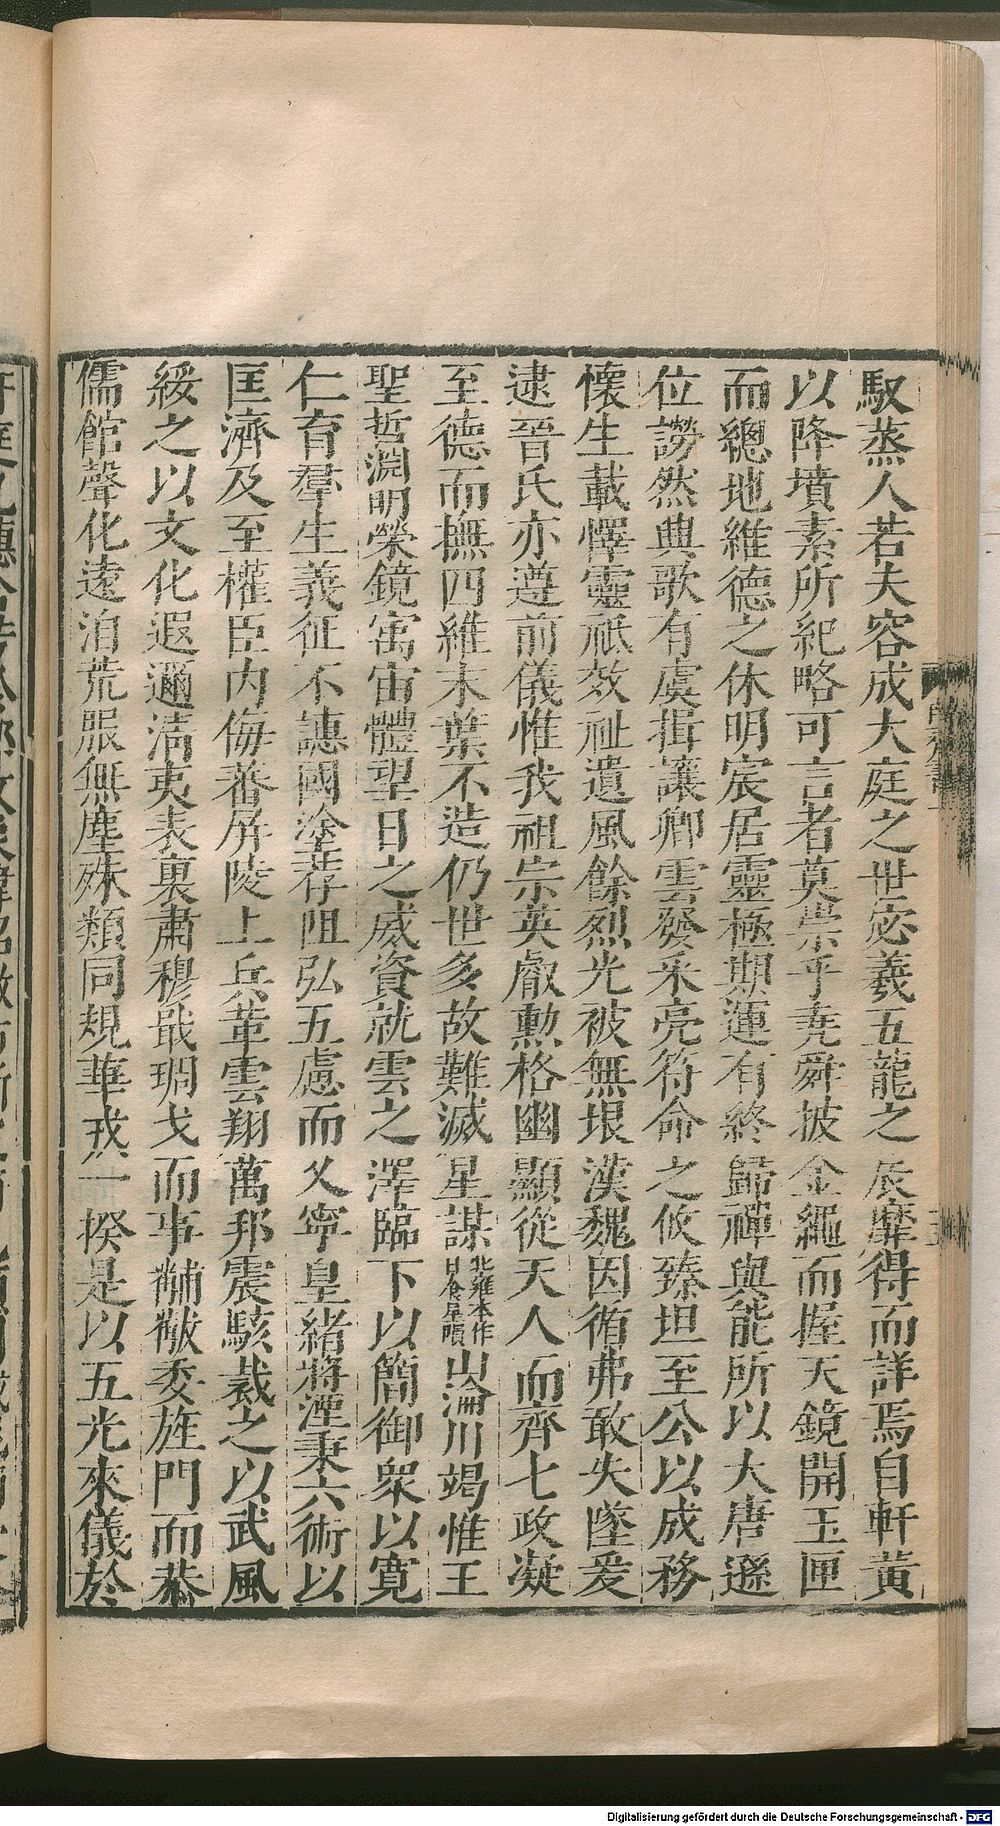 馭蒸人若夫容成大庭之世宓羲五龍之辰靡得而詳焉自軒黃
以降墳素所紀略可言者莫崇乎堯舜披金繩而握天鏡開玉匣
而總地維德之休明宸居靈極期運有終歸禪與能所以大唐遜
位謗然興歌有虞揖讓卿雲發采亮符命之攸臻坦至公以成務
懷生載懌靈祇效祉遺風餘烈光被無垠漢魏因循弗敢失墜爰
逮晉氏亦遵前儀惟我祖宗英叡勳格幽顯從天人而齊七政凝
至德而撫四維末葉不造仍世多故難滅星謀北雍本作日食星隕山淪川竭惟王
聖哲淵明榮鏡寓宙體望日之威資就雲之澤臨下以簡御衆以寛
仁育羣生義征不譓國塗荐阻弘五慮而乂寧皇緒將湮秉六術以
匡濟及至權臣内侮蕃屏陵上兵革雲翔萬邦震駭裁之以武風
綏之以文化遐邇淸夷表裏肅穆戢琱戈而事黼黻委旌門而恭
儒館聲化遠洎荒服無塵殊類同規華戎一揆是以五光來儀於
Digitalisierung gefördert durch die Deutsche Forschungsgemeinschaft - DFG